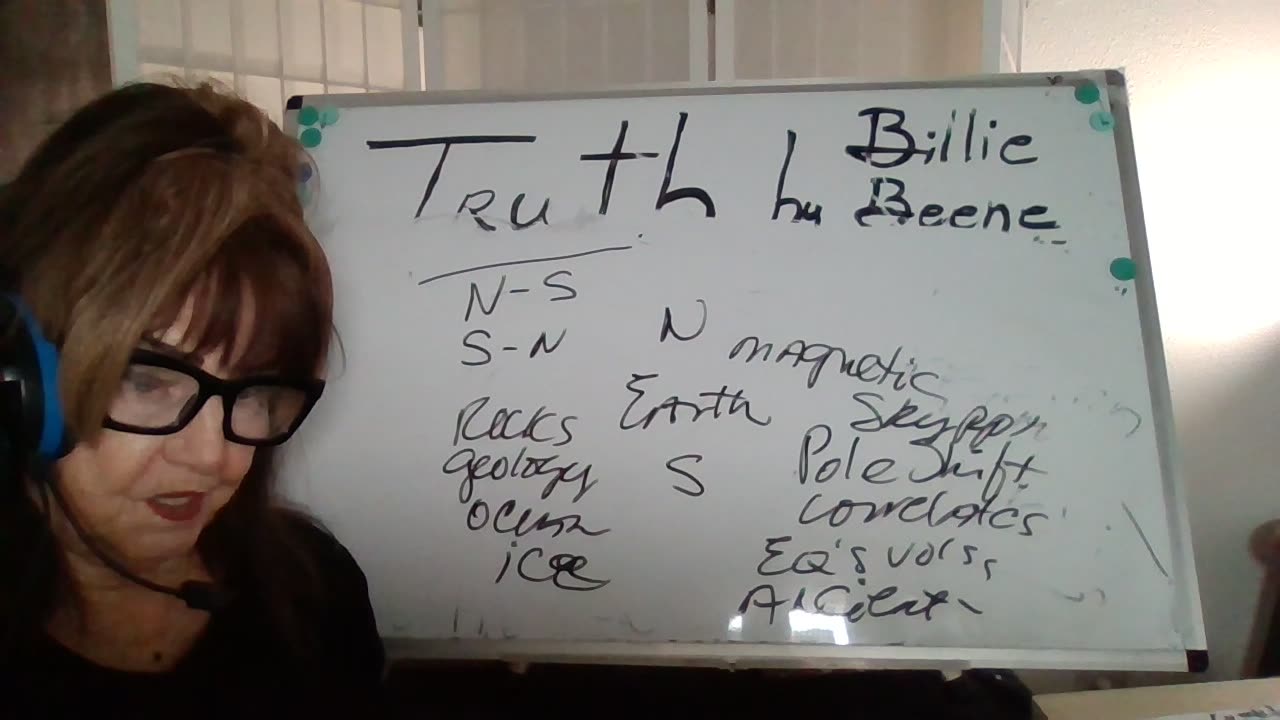 Truth by Billie
Beene
N-S
S-N
N
magnetic
Rocks
Earth
geology
S
Pole shift
Ocean
correlates
ice
EQ's vols,